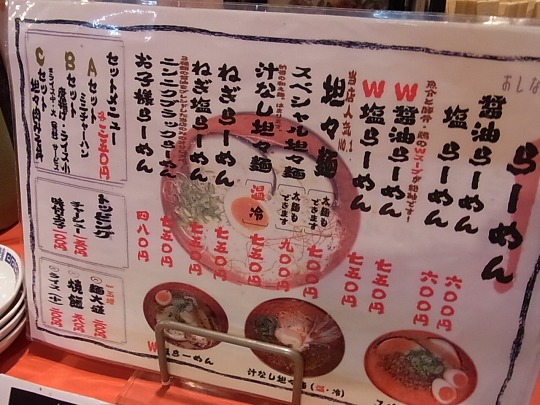 おしな
らーめん
醤油らーめん 六〇〇円
塩らーめん 六〇〇円
W醤油らーめん 七五〇円
W塩らーめん 七五〇円
当店人気No.1
坦々麺 七〇〇円
大盛もできます
スペシャル坦々麺 九〇〇円
大盛もできます
汁なし坦々麺 温 冷 七五〇円
ねぎらーめん 七五〇円
ねぎ塩らーめん 七五〇円
ニンニクブラックらーめん 七五〇円
お子様らーめん 四八〇円
セットメニュー
Aセット
ミニチャーハン
Bセット
唐揚げ・ライス小
Cセット
トッピング
チャーシュー
味付玉子
麺大盛
焼飯
ライス
らーめん
汁なし坦々麺(温・冷)